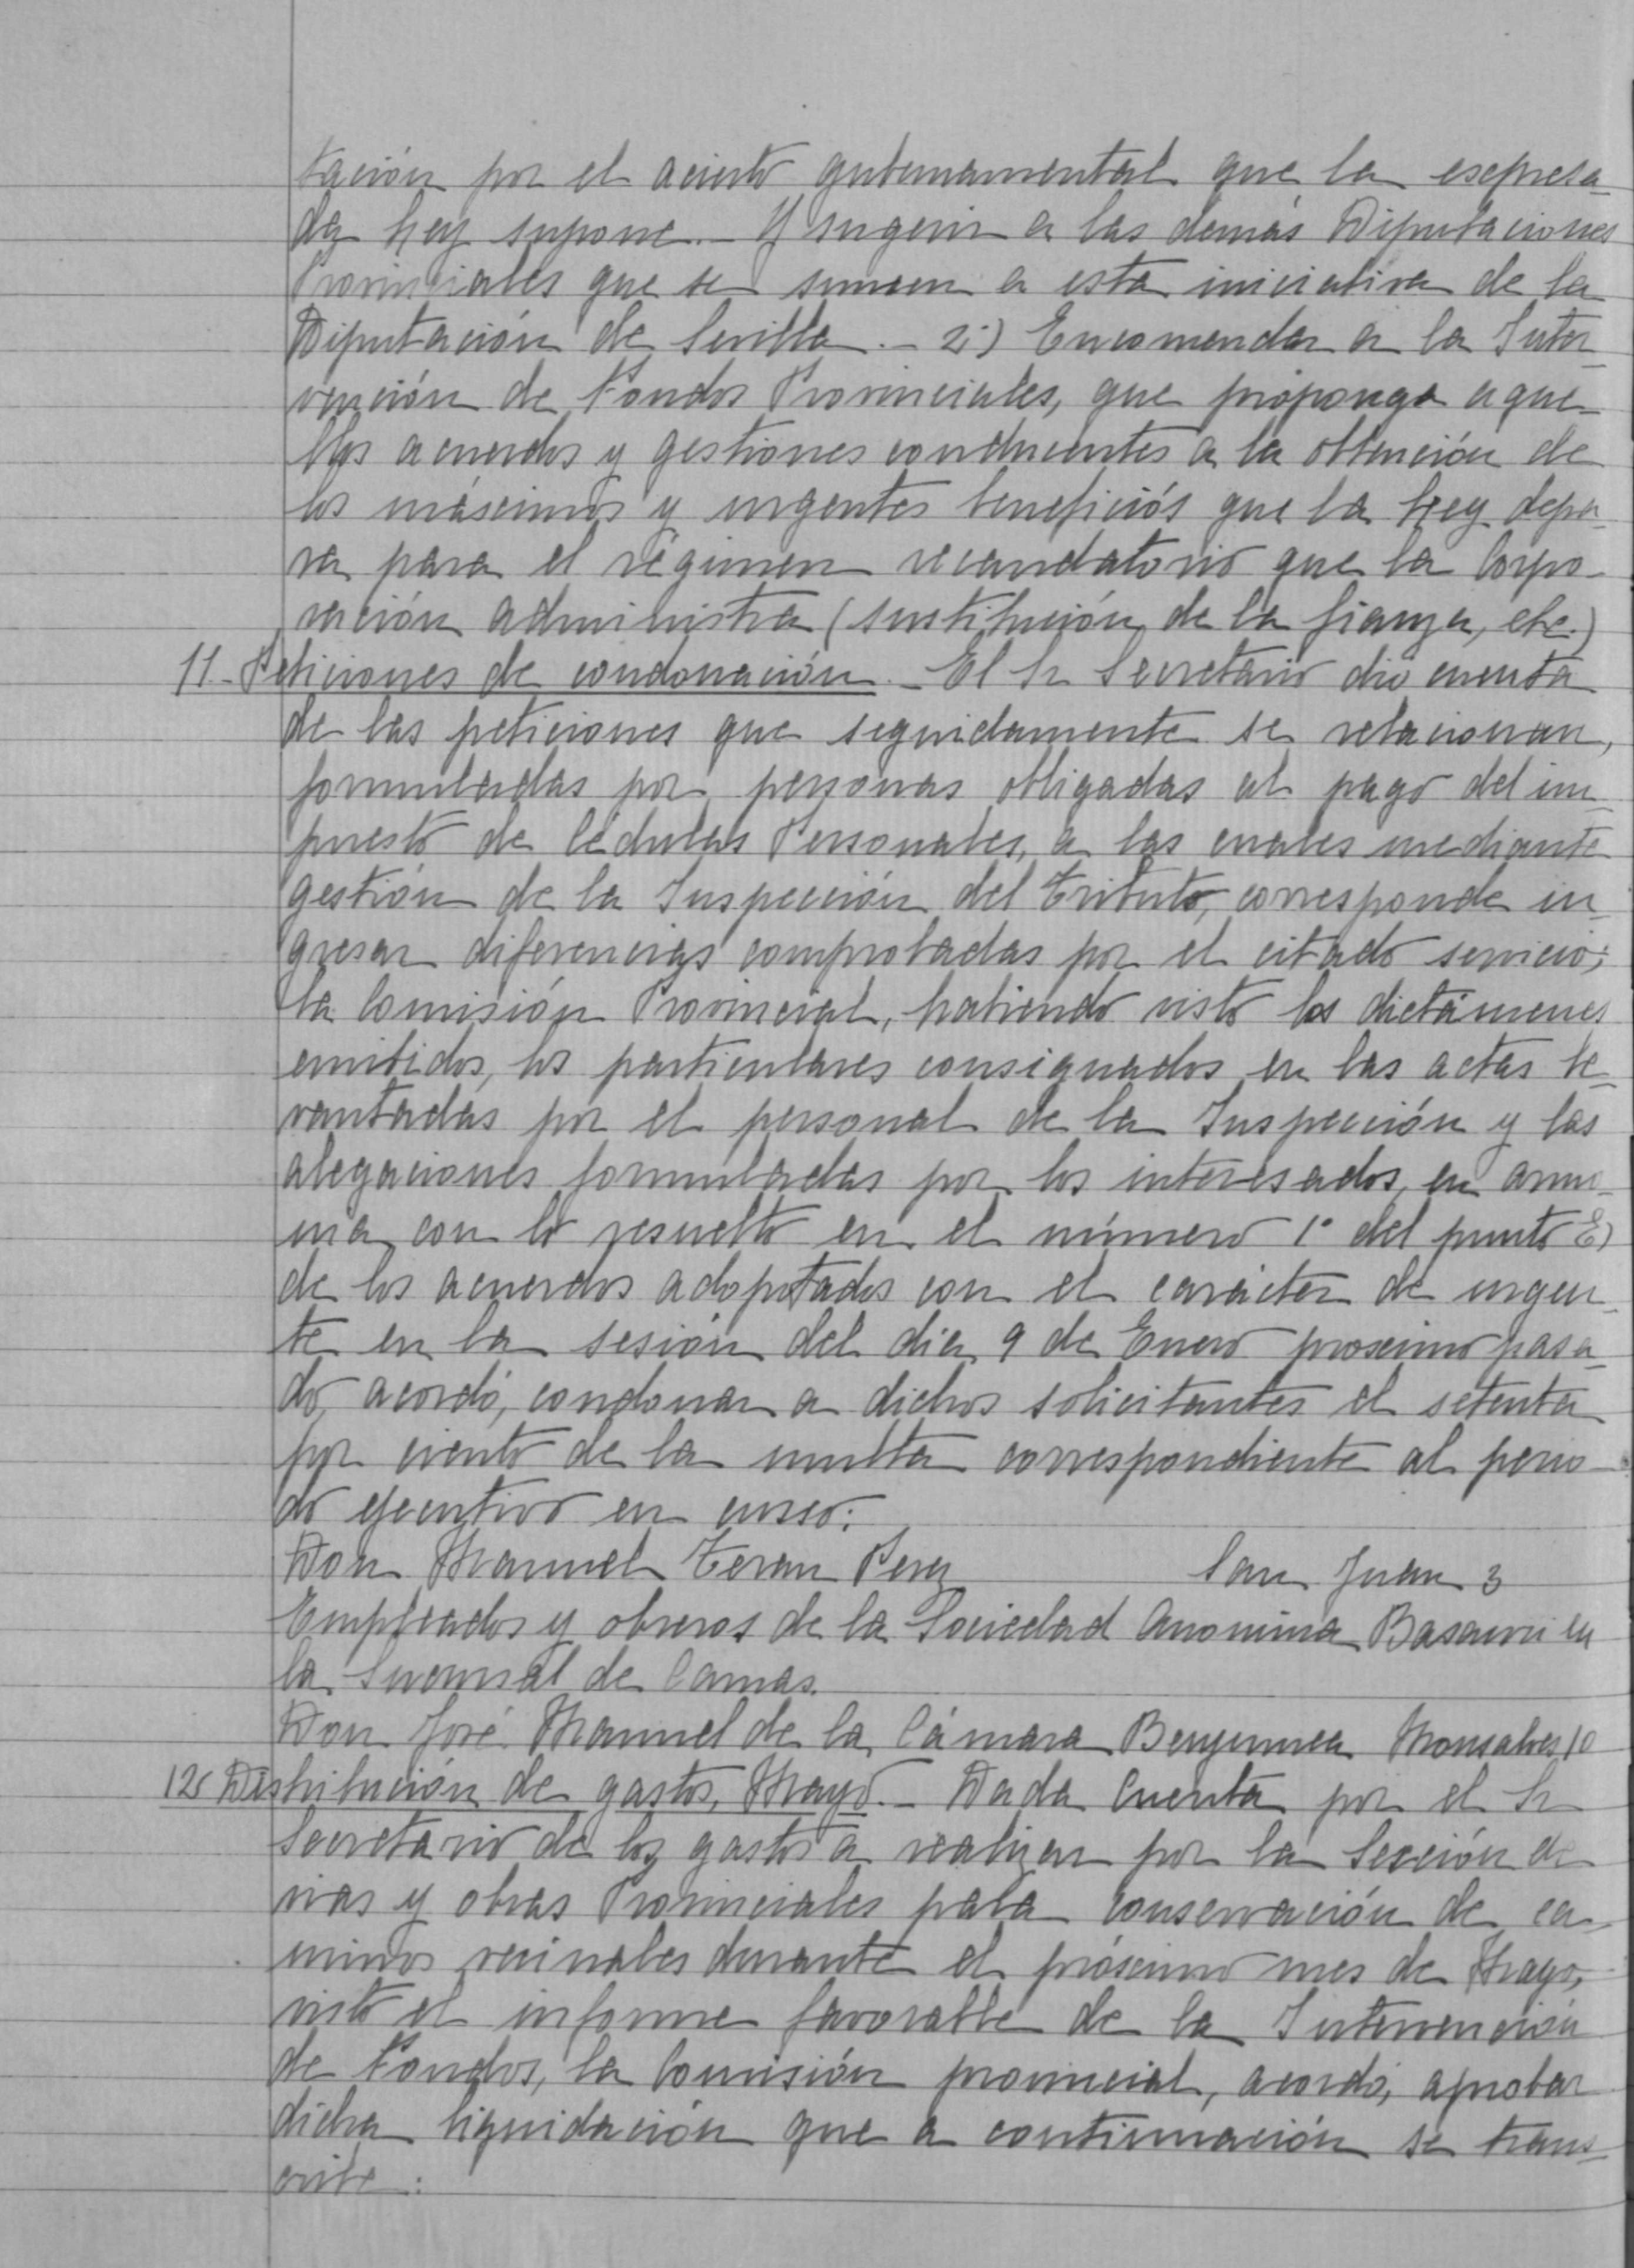 tación por el acierto gubernamental que la expresa-
da Ley supone.- Y sugerir a las demás Diputaciones
Provinciales que se sumen a esta iniciativa de la
Diputación de Sevilla.- 2º) Encomendar a la Inter-
vención de Fondos Provinciales, que proponga aque-
llos acuerdos y gestiones conducentes a la obtención de
los máximos y urgentes beneficios que la Ley depa-
ra para el régimen recaudatorio que la Corpo-
ración administra (sustitución de la fianza, etc.)
11.- Peticiones de condonación.- El Sr Secretario dió cuenta
de las peticiones que seguidamente se relacionan,
formuladas por personas obligadas al pago del im-
puesto de Cédulas Personales, a las cuales mediante
gestión de la Inspección del Tributo, corresponde in-
gresar diferencias comprobadas por el citado servicio;
la Comisión Provincial, habiendo visto los dictámenes
emitidos, los particulares consignados en las actas le-
vantadas por el personal de la Inspección y las
alegaciones formuladas por los interesados, en armo-
nia con lo resuelto en el número 1º del punto E)
de los acuerdos adoptados con el carácter de urgen-
te en la sesión del dia 9 de Enero proximo pasa-
do, acordó, condonar a dichos solicitantes el setenta
por ciento de la multa correspondiente al perio-
do ejecutivo en curso:
Don Manuel Teran Perez San Juan 3
Empleados y obreros de la Sociedad Anonima Basauri en
la Sucursal de Camas.
Don José Manuel de la Cámara Benjumea Monsalves 10
12 Distribución de gastos, Mayo.- Dada Cuenta por el Sr
Secretario de los gastos a realizar por la Sección de
vias y obras Provinciales para conservación de ca-
minos vecinales durante el próximo mes de Mayo,
visto el informe favorable de la Intervención
de Fondos, la Comisión provincial, acordó, aprobar
dicha liquidación que a continuación se trans-
cribe: